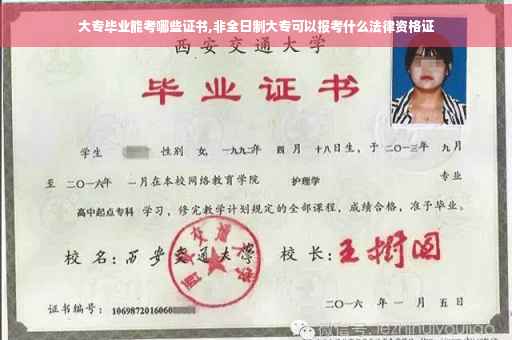 大专毕业能考哪些证书,非全日制大专可以报考什么法律资格证
西安交通大学
毕业证书
学生 性别 女, 一九九二年 四 月 十八日生, 于 二〇一三年 九月
至 二〇一六年 一月在本校网络教育学院 护理学 专业
高中起点专科 学习, 修完教学计划规定的全部课程, 成绩合格, 准予毕业。
校 名: 西安交通大学 校 长: 王树国
西安交通大学
证书编号: 1069872016060
二〇一六 年 一 月 五 日
微信号: jezhinuiyoujiao